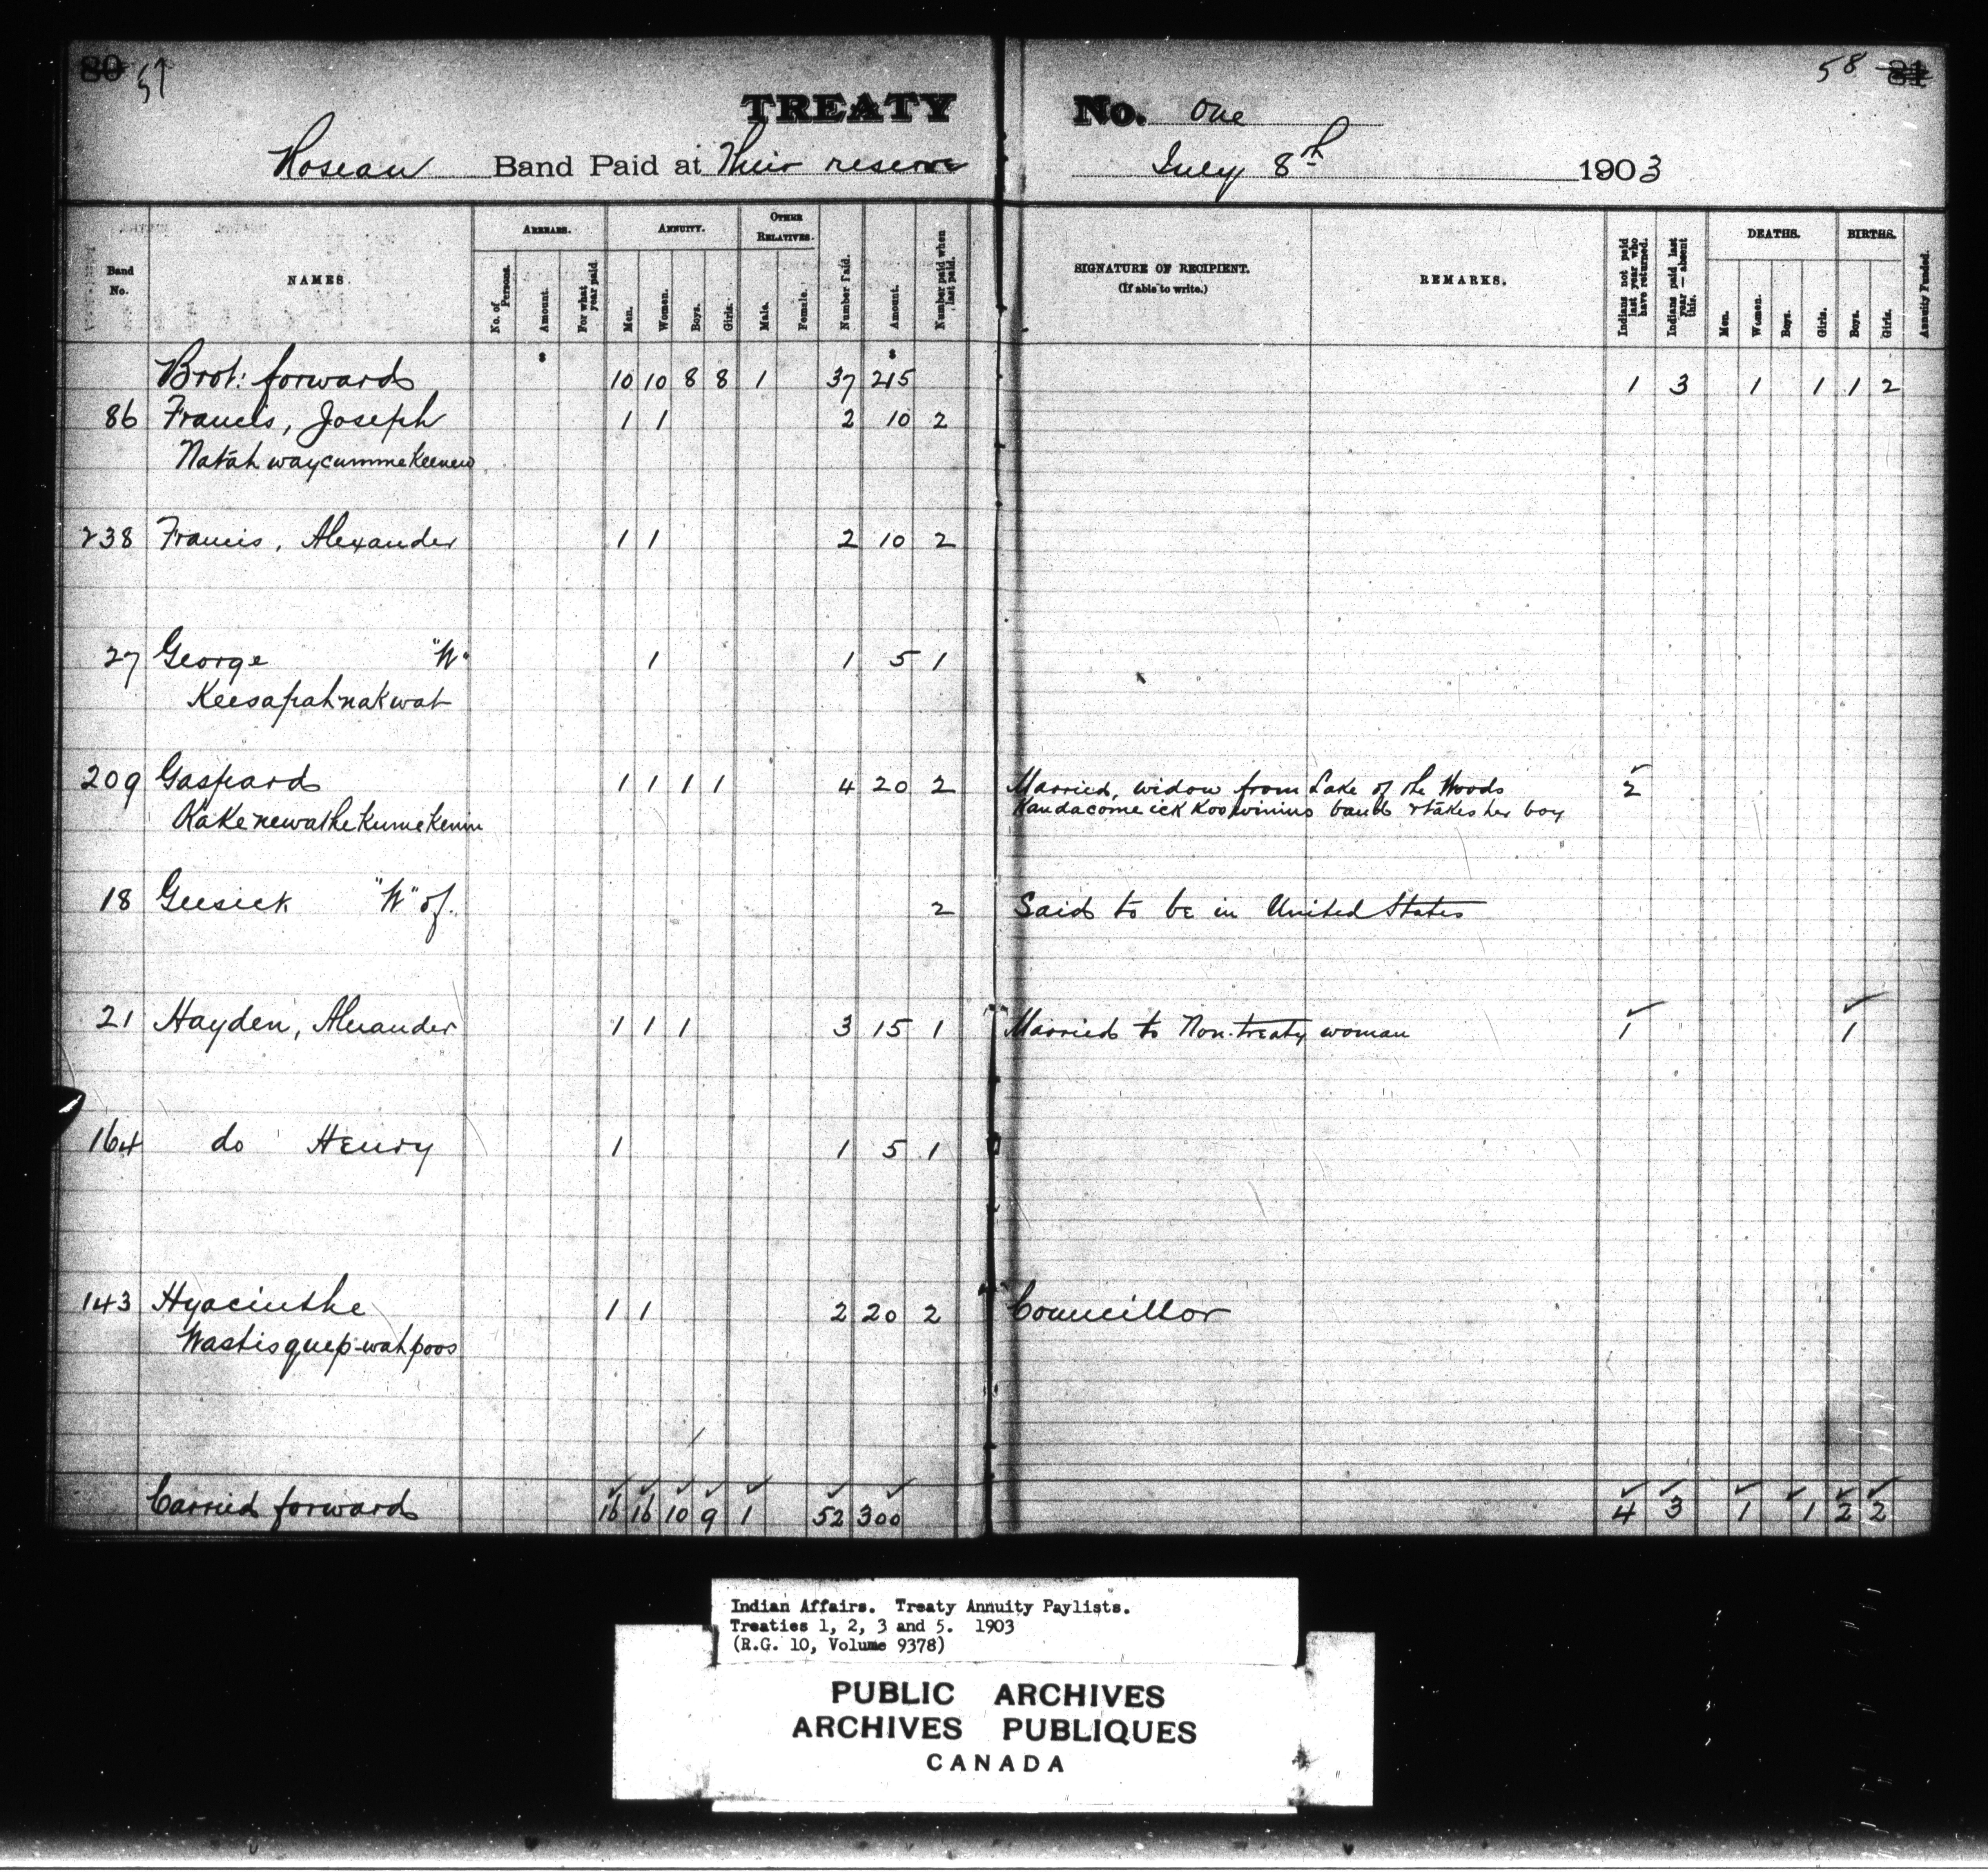 80 57
58 81
TREATY No. One
Roseau Band Paid at Their reserve July 8th 1903
Band No.
NAMES.
ARREARS.
No. of Persons.
Amount.
For what year paid
ANNUITY.
Men.
Women.
Boys.
Girls.
OTHER RELATIVES.
Male.
Female.
Number Paid.
Amount.
Number paid when last paid.
SIGNATURE OF RECIPIENT.
(If able to write.)
REMARKS.
Indians not paid last year who have returned.
Indians paid last year — absent this.
DEATHS.
Men.
Women.
Boys.
Girls.
BIRTHS.
Boys.
Girls.
Annuity Funded.
$ $
Brot: forward 10 10 8 8 1 37 215 1 3 1 1 1 2
86 Francis, Joseph 1 1 2 10 2
Natahwaycummekeenew
238 Francis, Alexander 1 1 2 10 2
27 George "W" 1 1 5 1
Keesapah-nakwat
209 Gaspard 1 1 1 1 4 20 2 Married, widow from Lake of the Woods 2
band & takes her boy
18 Geesick "W" of 2 Said to be in United States
21 Hayden, Alexander 1 1 1 3 15 1 Married to Non-treaty woman 1 1
164 do Henry 1 1 5 1
143 Hyacinthe 1 1 2 20 2 Councillor
Wastisquep-wahpoos
Carried forward 16 16 10 9 1 52 300 4 3 1 1 2 2
Indian Affairs. Treaty Annuity Paylists.
Treaties 1, 2, 3 and 5. 1903
(R.G. 10, Volume 9378)
PUBLIC ARCHIVES
ARCHIVES PUBLIQUES
CANADA